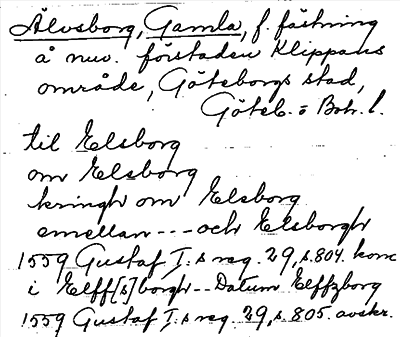 Älvsborg, Gamla, f. fästning
å nuv. förstaden Klippans
område, Göteborgs stad,
Göteb. o Boh. l.
til Elsborg
om Elsborg
kringh om Elsborg
emellan --- och Elsborgh
1559 Gustaf I:s reg. 29, s. 804. konc
i Elff[s]borgh -- Datum Elffzborg
1559 Gustaf I:s reg. 29, s. 805. avskr.